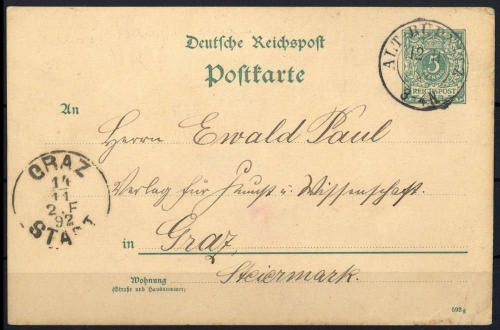 Deutsche Reichspost
Postkarte
5
REICHSPOST
ALT
12
3-4N
An
Herrn Ewald Paul
Verlag für Kunst u. Wissenschaft.
in Graz
Steiermark.
Wohnung
(Straße und Hausnummer)
GRAZ
14
11
2.F
92
STADT
692g